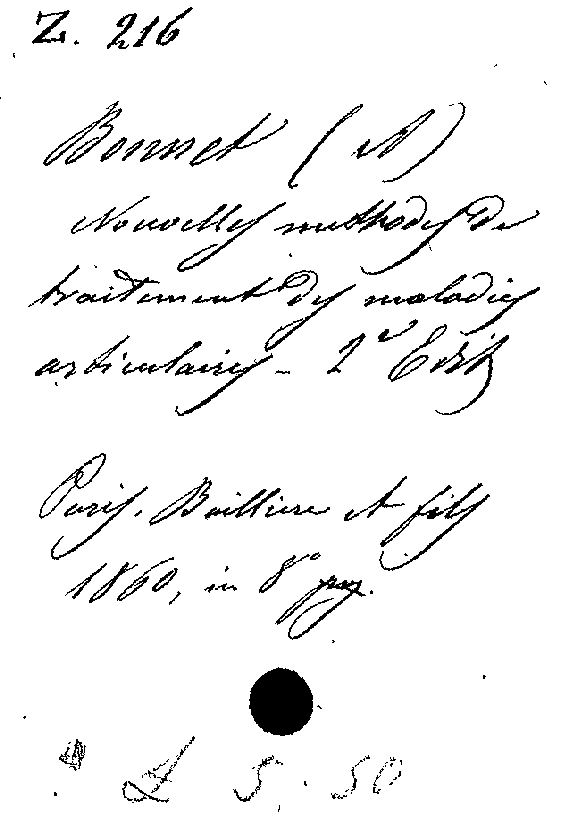 Z. 216
Bonnet (A)
Nouvelles methodes de
traitement des maladies
articulaires - 2e Edit
Paris. Baillière et fils
1860, in 8°
5.50